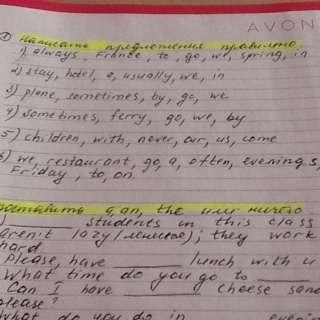 AVON
① Написать предложения правильно.
1) always, France, to, go, we, spring, in
2) stay, hotel, a, usually, we, in
3) plane, sometimes, by, go, we
4) Sometimes, ferry, go, we, by
5) children, with, never, our, us, come
6) we, restaurant, go, a, often, evenings,
Friday, to, on.
a, an, the или ничего
students in this class
aren't lazy (ленивые); they work
hard
Please, have ______ lunch with u
What time do you go to ______
Can I have ______ cheese sand
please?
What do you do in ______ evenin